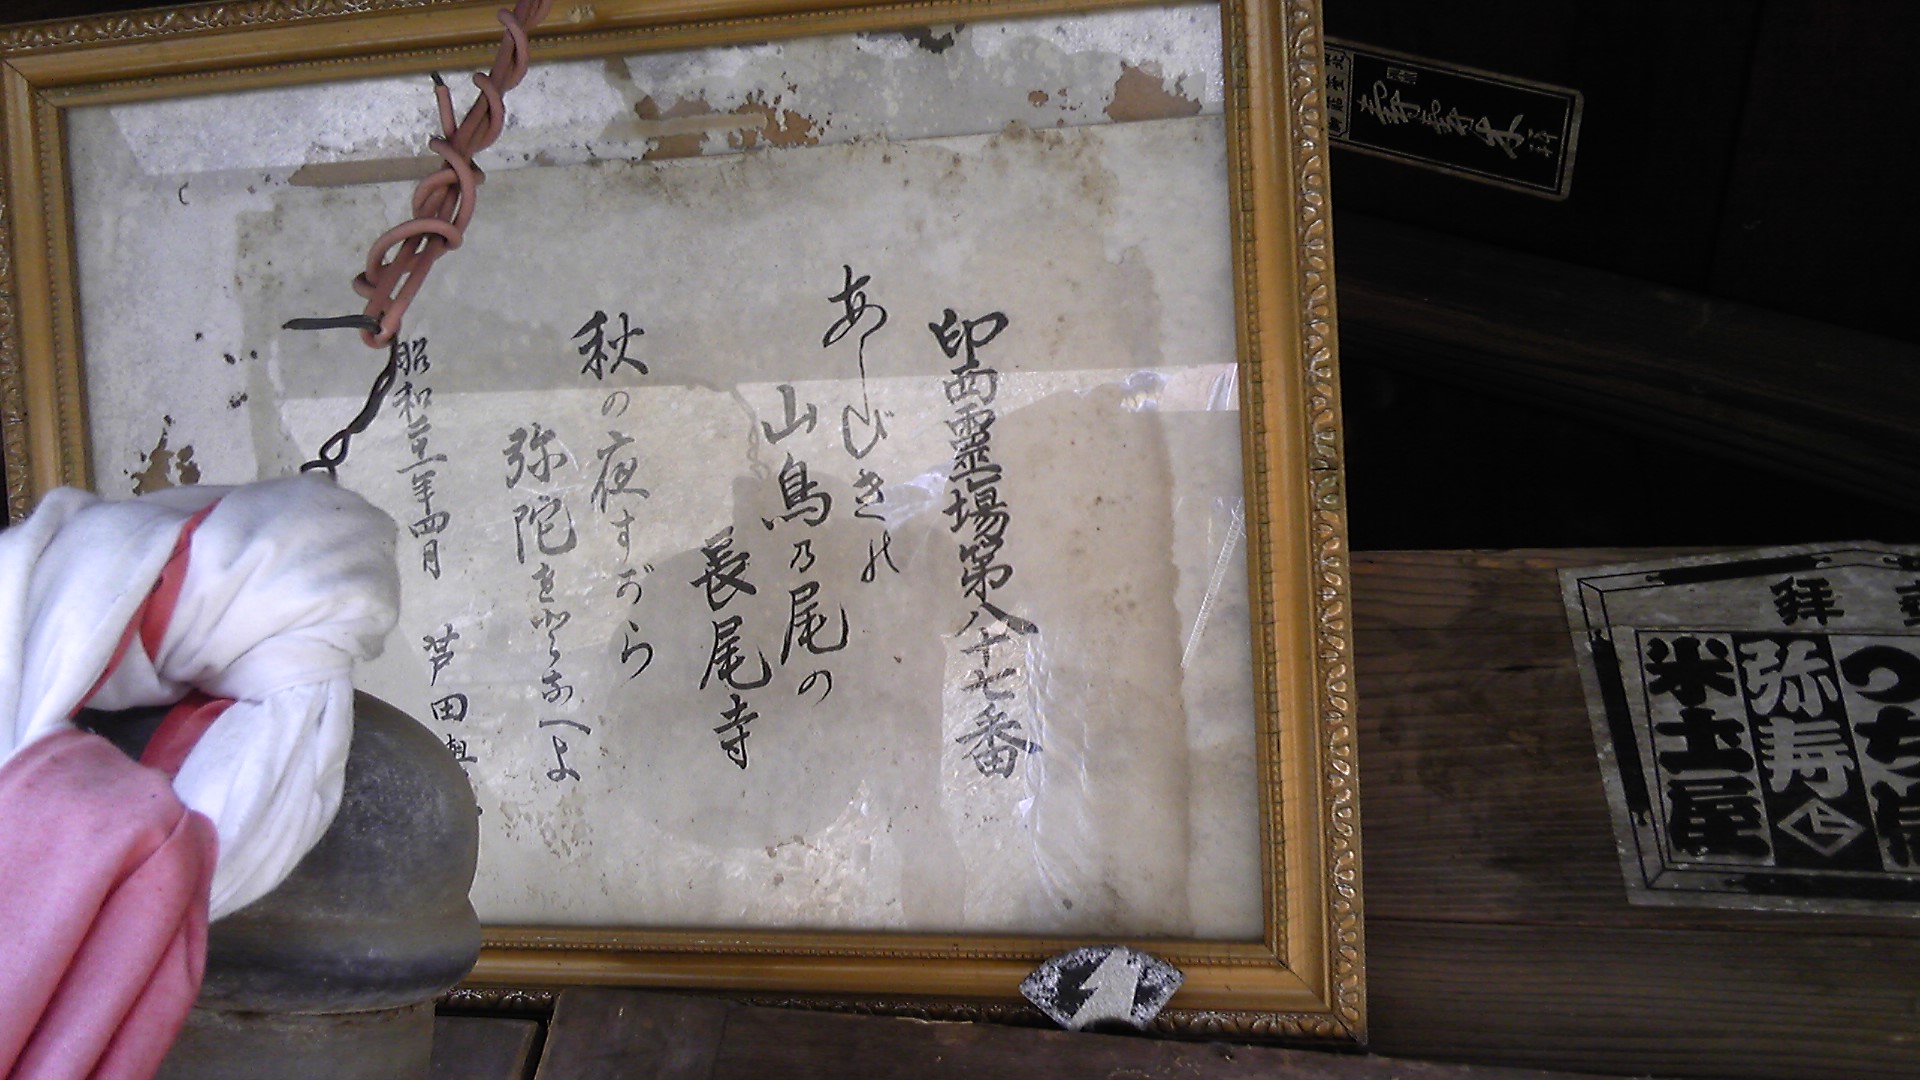 印西霊場第八十七番
あしびきの
山鳥乃尾の
長尾寺
秋の夜すがら
弥陀をとなへよ
昭和三二年四月 芦田
拝
つち
弥寿
米土屋